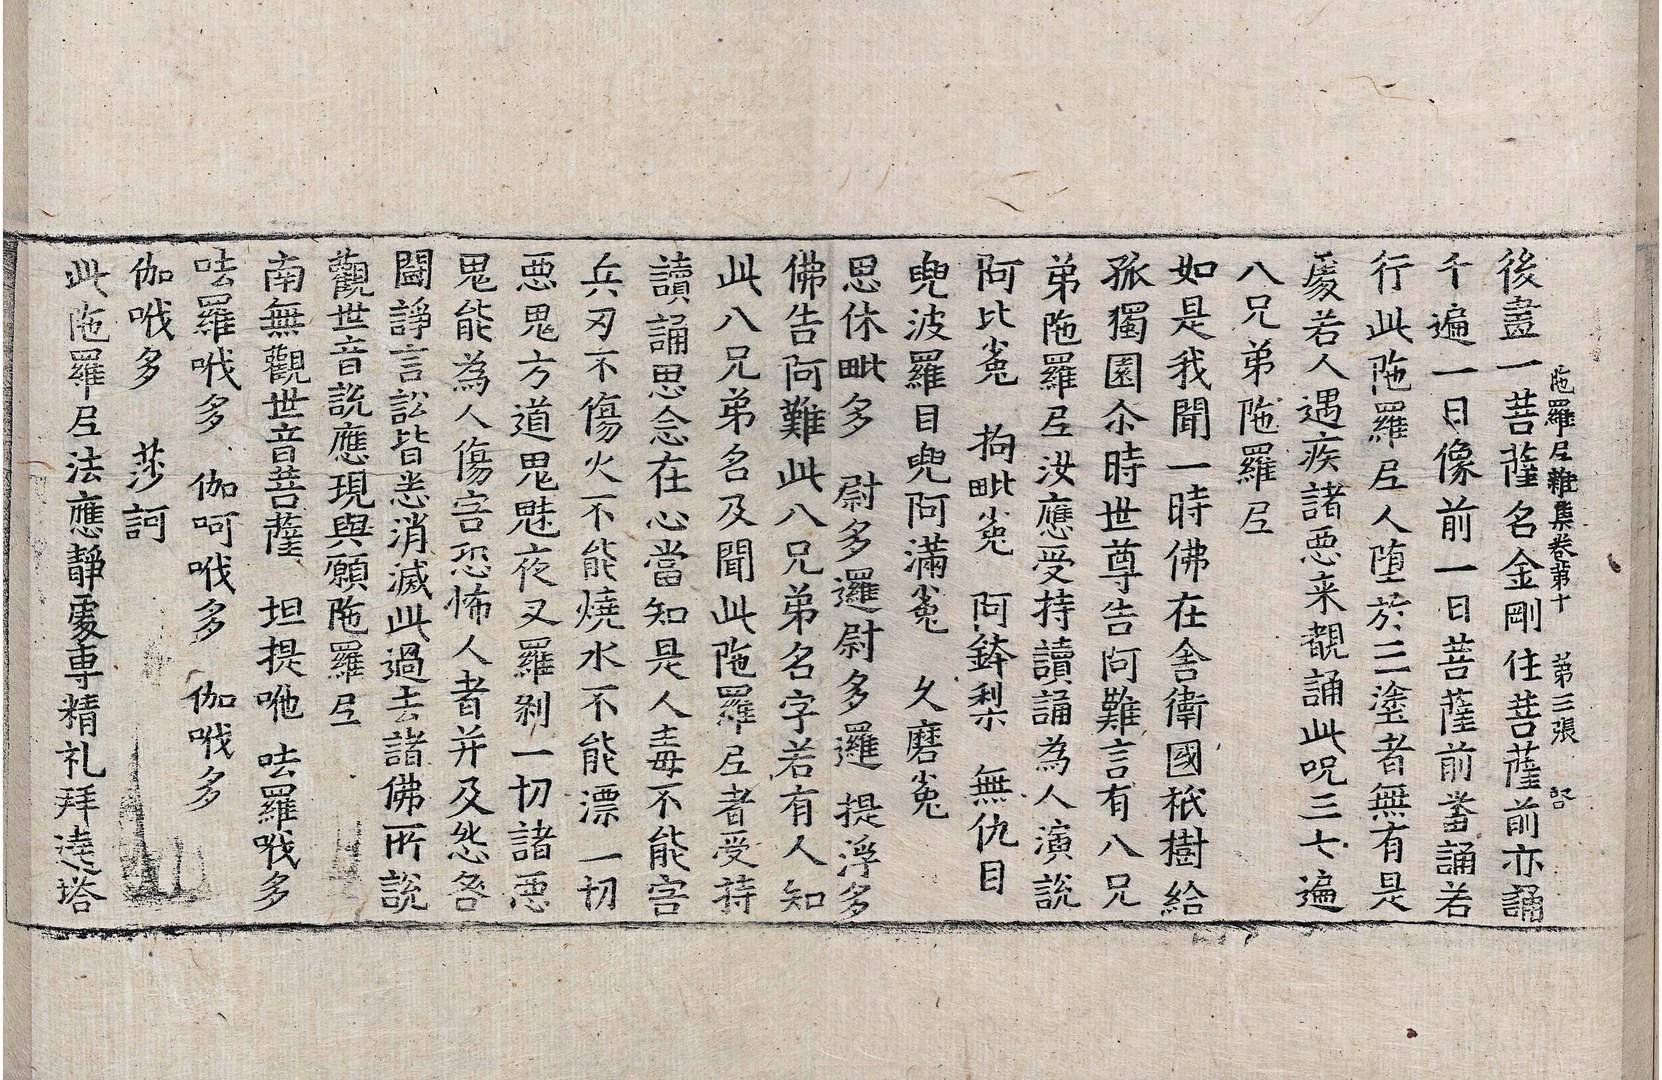 陁羅尼雜集卷第十　第三張
後畫一菩薩名金剛住菩薩前亦誦
千遍一日像前一日菩薩前畨誦若
行此陁羅尼人墮於三塗者無有是
處若人遇疾諸惡来覩誦此呪三七遍
八兄弟陁羅尼
如是我聞一時佛在舍衛國祇樹給
孤獨園尒時世尊告阿難言有八兄
弟陁羅尼汝應受持讀誦為人演說
阿比㝹　拘毗㝹　阿鉢梨　無仇目
兜波羅目兜阿滿㝹　久磨㝹
思休毗多　尉多邏尉多邏　提浮多
佛告阿難此八兄弟名字若有人知
此八兄弟名及聞此陁羅尼者受持
讀誦思念在心當知是人毒不能害
兵刃不傷火不能燒水不能漂一切
惡鬼方道鬼魅夜叉羅剎一切諸惡
鬼能為人傷害恐怖人者并及怨咎
鬪諍言訟皆悉消滅此過去諸佛所說
觀世音說應現與願陁羅尼
南無觀世音菩薩　坦提咃　呿羅㖑多
呿羅㖑多　伽呵㖑多　伽㖑多
伽㖑多　莎訶
此陁羅尼法應靜處専精礼拜遶塔